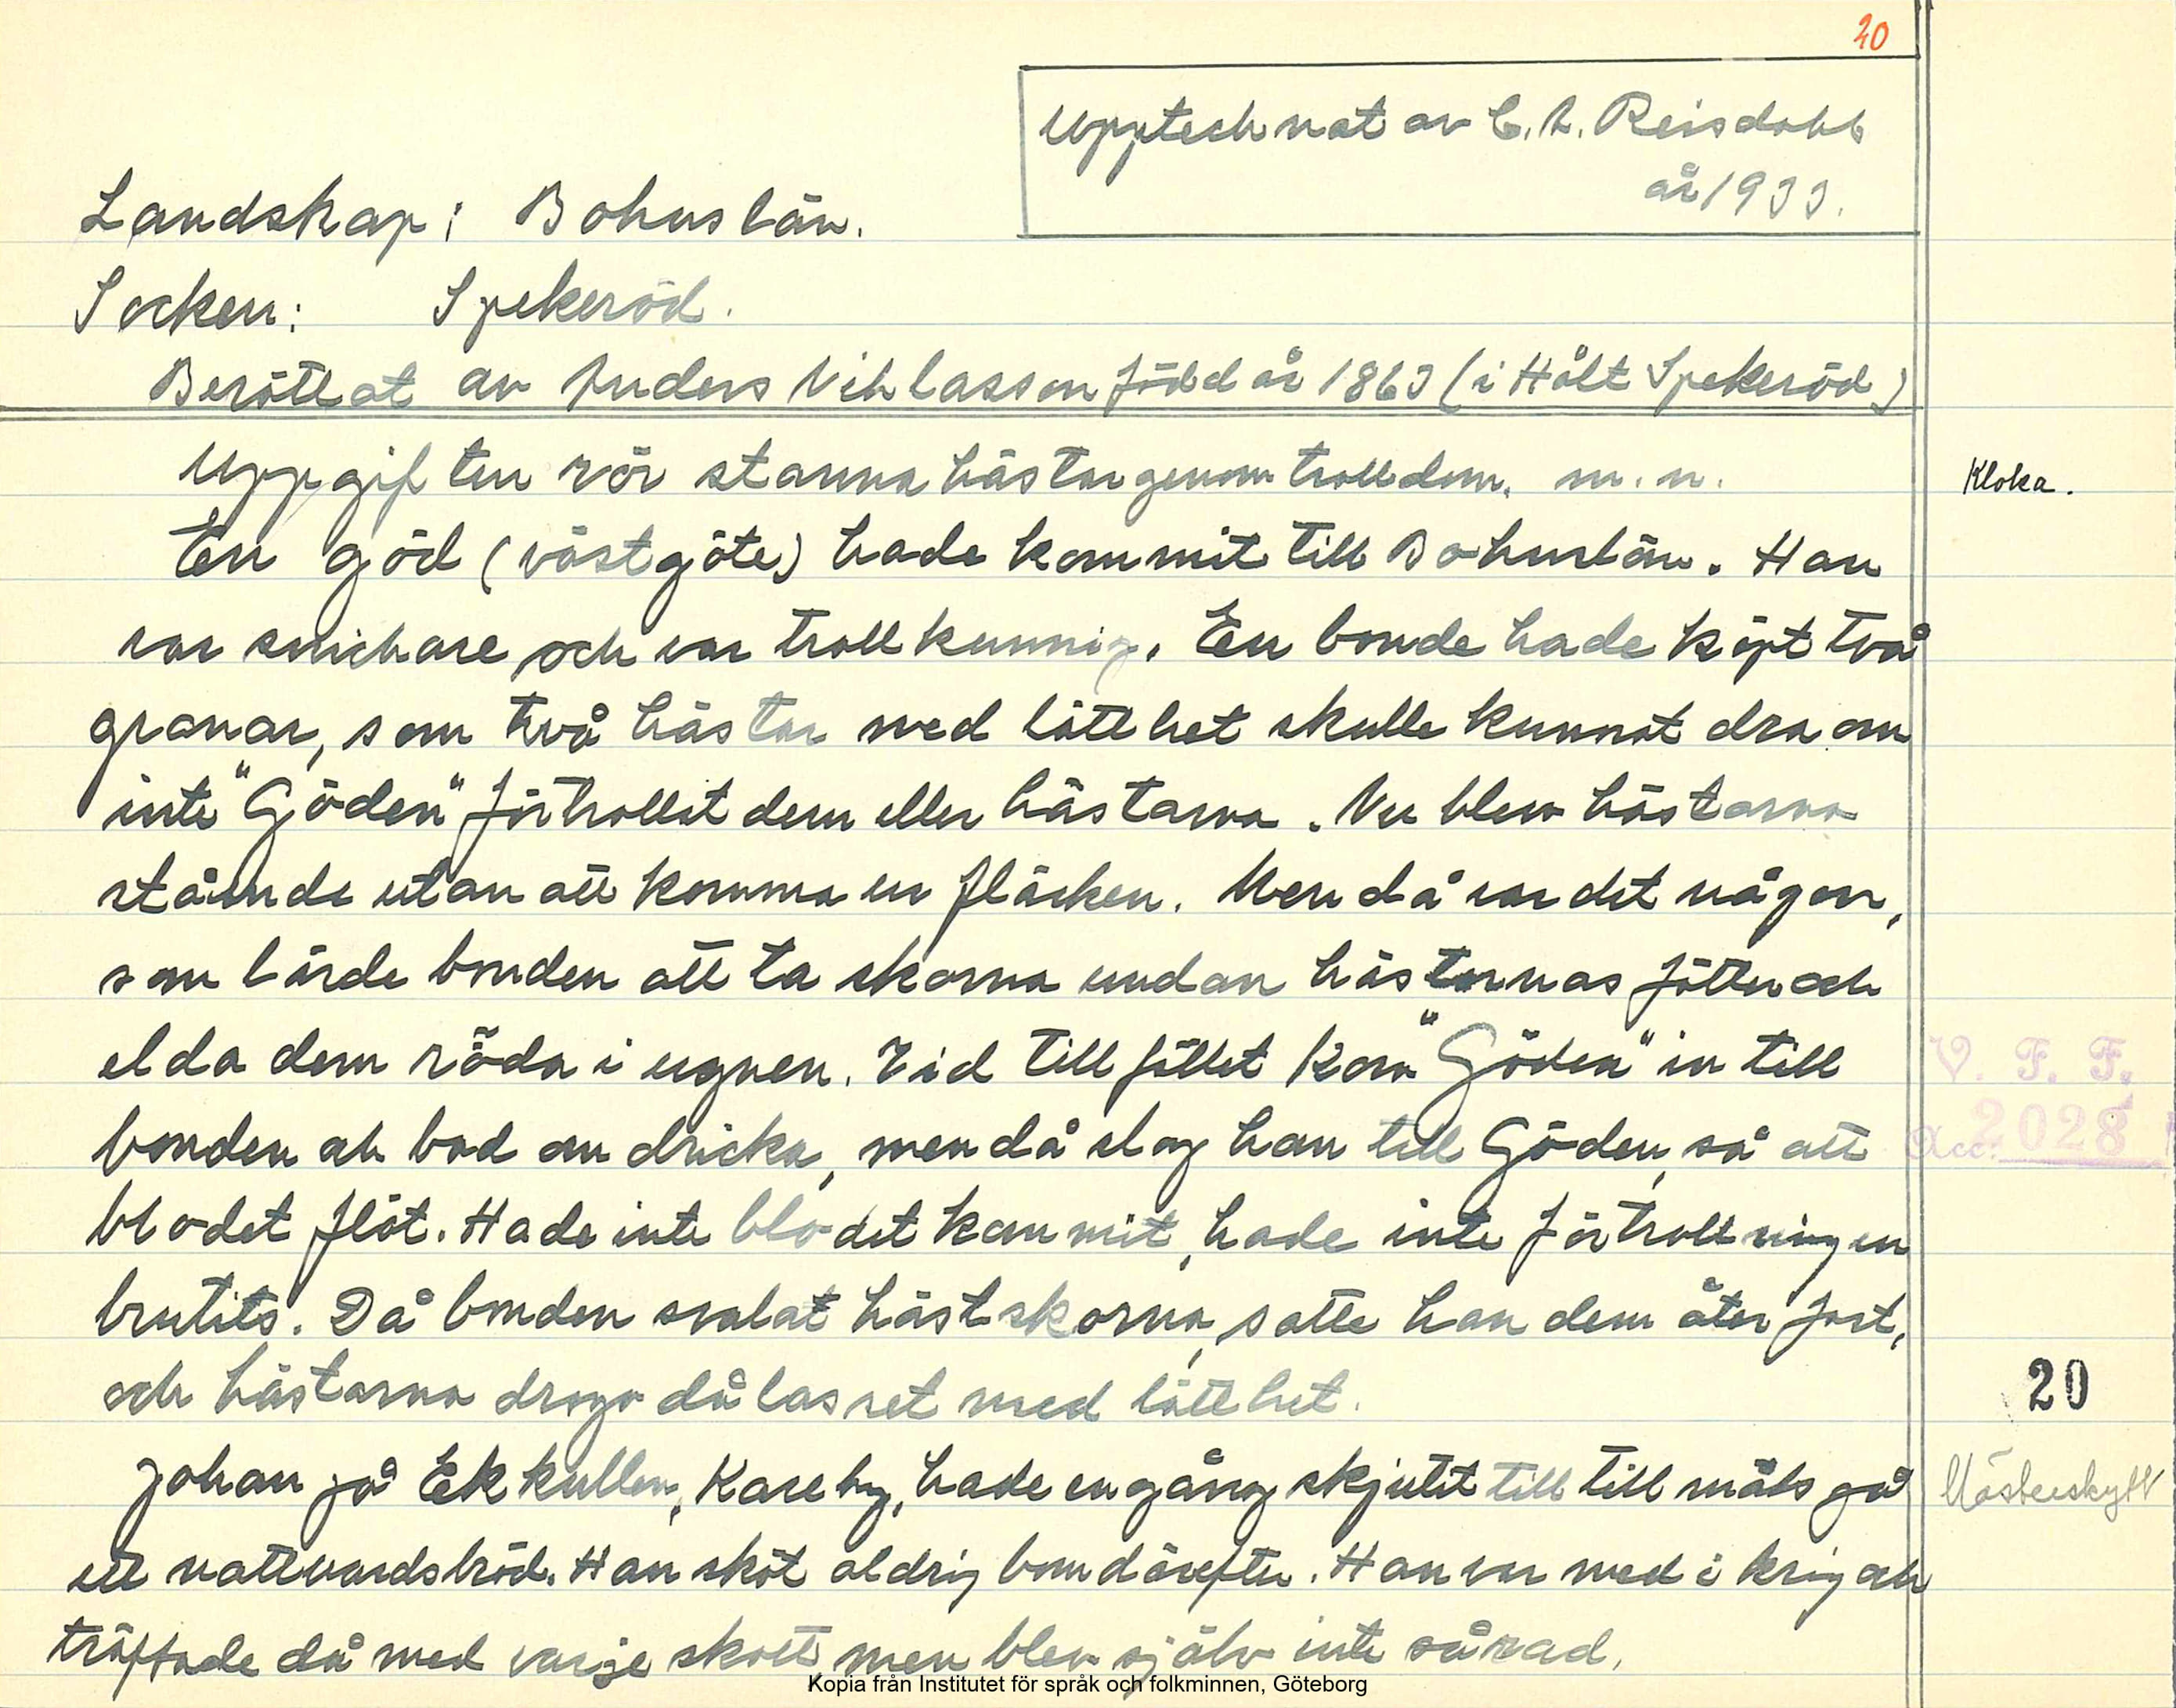 20
Upptecknat av C. A. Reisdahl
år 1933.
Landskap: Bohuslän.
Socken: Spekeröd.
Berättat av Anders Niklasson född år 1863 (i Hålt Spekeröd)
Uppgiften rör stanna hästar genom trolldom, m. m.
Kloka.
En göd (västgöte) hade kommit till Bohuslän. Han
var snickare och var trollkunnig. En bonde hade köpt två
granar, som två hästar med lätthet skulle kunnat dra om
inte "Göden" förtrollat dem eller hästarna. Nu blev hästarna
stående utan att komma ur fläcken. Men då var det någon,
som lärde bonden att ta skorna undan hästarnas fötter och
elda dem röda i ugnen. Vid tillfället kom "Göden" in till
V. F. F.
bonden och bad om dricka, men då slog han till Göden, så att
Acc. 2028
blodet flöt. Hade inte blodet kommit, hade inte förtrollningen
brutits. Då bonden svalat hästskorna, satte han dem åter fast,
och hästarna drogo då lasset med lätthet.
20
Johan på Ekkullen, Kareby, hade en gång skjutit till till måls på
Mästerskytt
ett nattvardsbröd. Han sköt aldrig bom därefter. Han var med i krig och
träffade då med varje skott men blev själv inte sårad.
Kopia från Institutet för språk och folkminnen, Göteborg